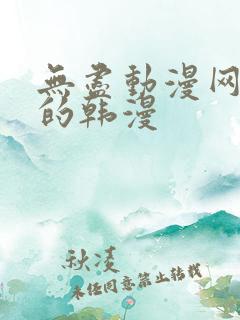 無盡動漫网
的韩漫
秋凌
未经同意禁止转载